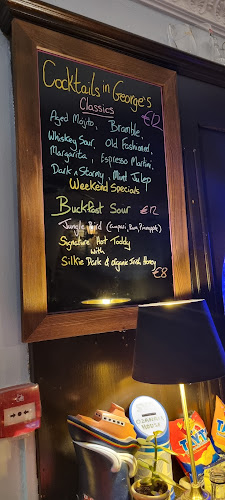 Cocktails in
George's
Classics €12
Aged Mojito, Bramble,
Whiskey Sour, Old Fashioned,
Margarita, Espresso Martini,
Dark n Stormy, Mint Julep
Weekend Specials
Buckfast Sour €12
Jungle Bird (Campari, Rum, Pineapple)
Signature Hot Toddy
with
Silkie Dark & Organic Irish Honey
€8
TAYTO